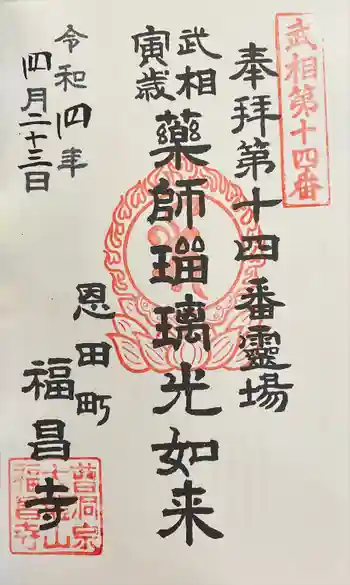 武相第十四番
奉拝第十四番靈場
武相
寅歳
藥師瑠璃光如来
恩田町
福昌寺
令和四年
四月二十三日
曹洞宗
福昌寺